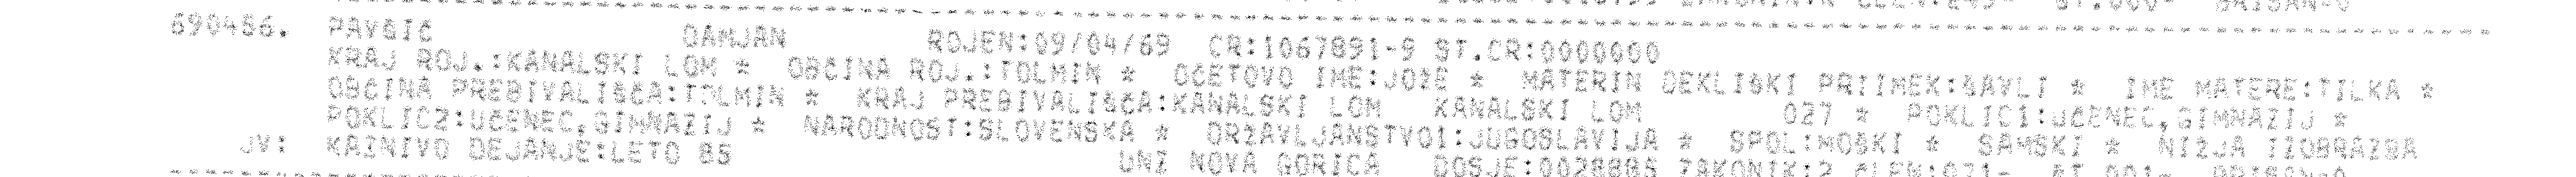 690456. PAVŠIČ DAMJAN ROJEN:09/04/69 CR:1067891-9 ST.CR:0000000
KRAJ ROJ.:KANALSKI LOM * OBČINA ROJ.:TOLMIN * OČETOVO IME:JOŽE * MATERIN DEKLIŠKI PRIIMEK:ŠAVLI * IME MATERE:TILKA *
OBČINA PREBIVALIŠČA:TOLMIN * KRAJ PREBIVALIŠČA:KANALSKI LOM KANALSKI LOM 027 * POKLIC1:UČENEC,GIMNAZIJ *
POKLIC2:UČENEC,GIMNAZIJ * NARODNOST:SLOVENSKA * DRŽAVLJANSTVO1:JUGOSLAVIJA * SPOL:MOŠKI * SAMSKI * NIŽJA IZOBRAZBA
JV: KAZNIVO DEJANJE:LETO 85 UNZ NOVA GORICA DOSJE:0028885 ZAKONIK:2 ČLEN:071-